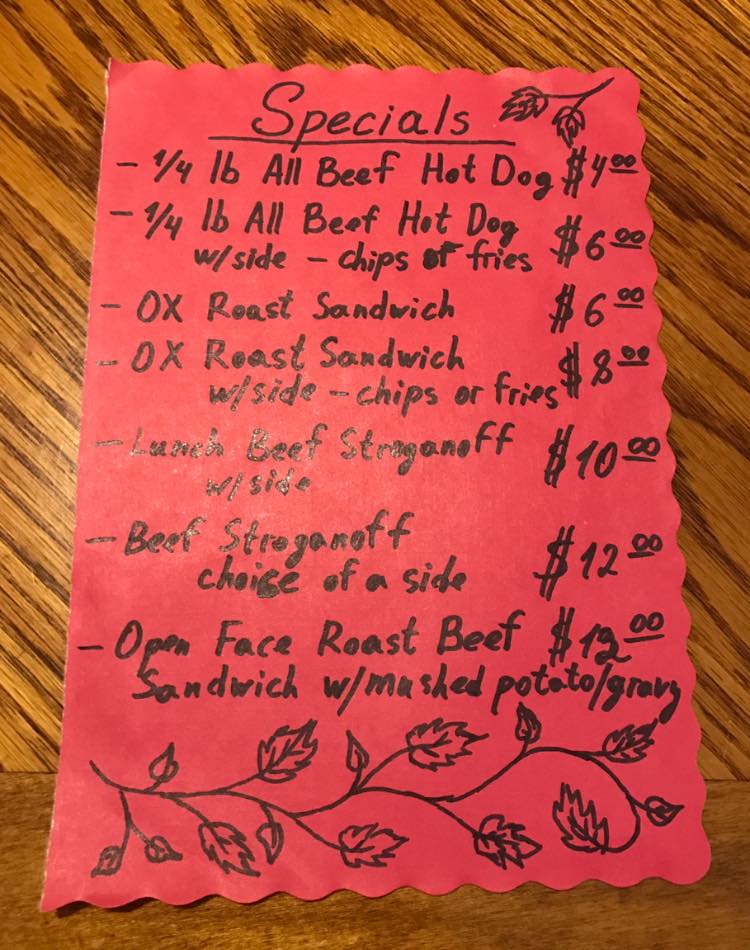 Specials
- 1/4 lb All Beef Hot Dog $4.00
- 1/4 lb All Beef Hot Dog
w/side - chips of fries $6.00
- OX Roast Sandwich $6.00
- OX Roast Sandwich
w/side - chips or fries $8.00
- Lunch Beef Stroganoff $10.00
w/side
- Beef Stroganoff
choise of a side $12.00
- Open Face Roast Beef $12.00
Sandwich w/mushed potato/gravy